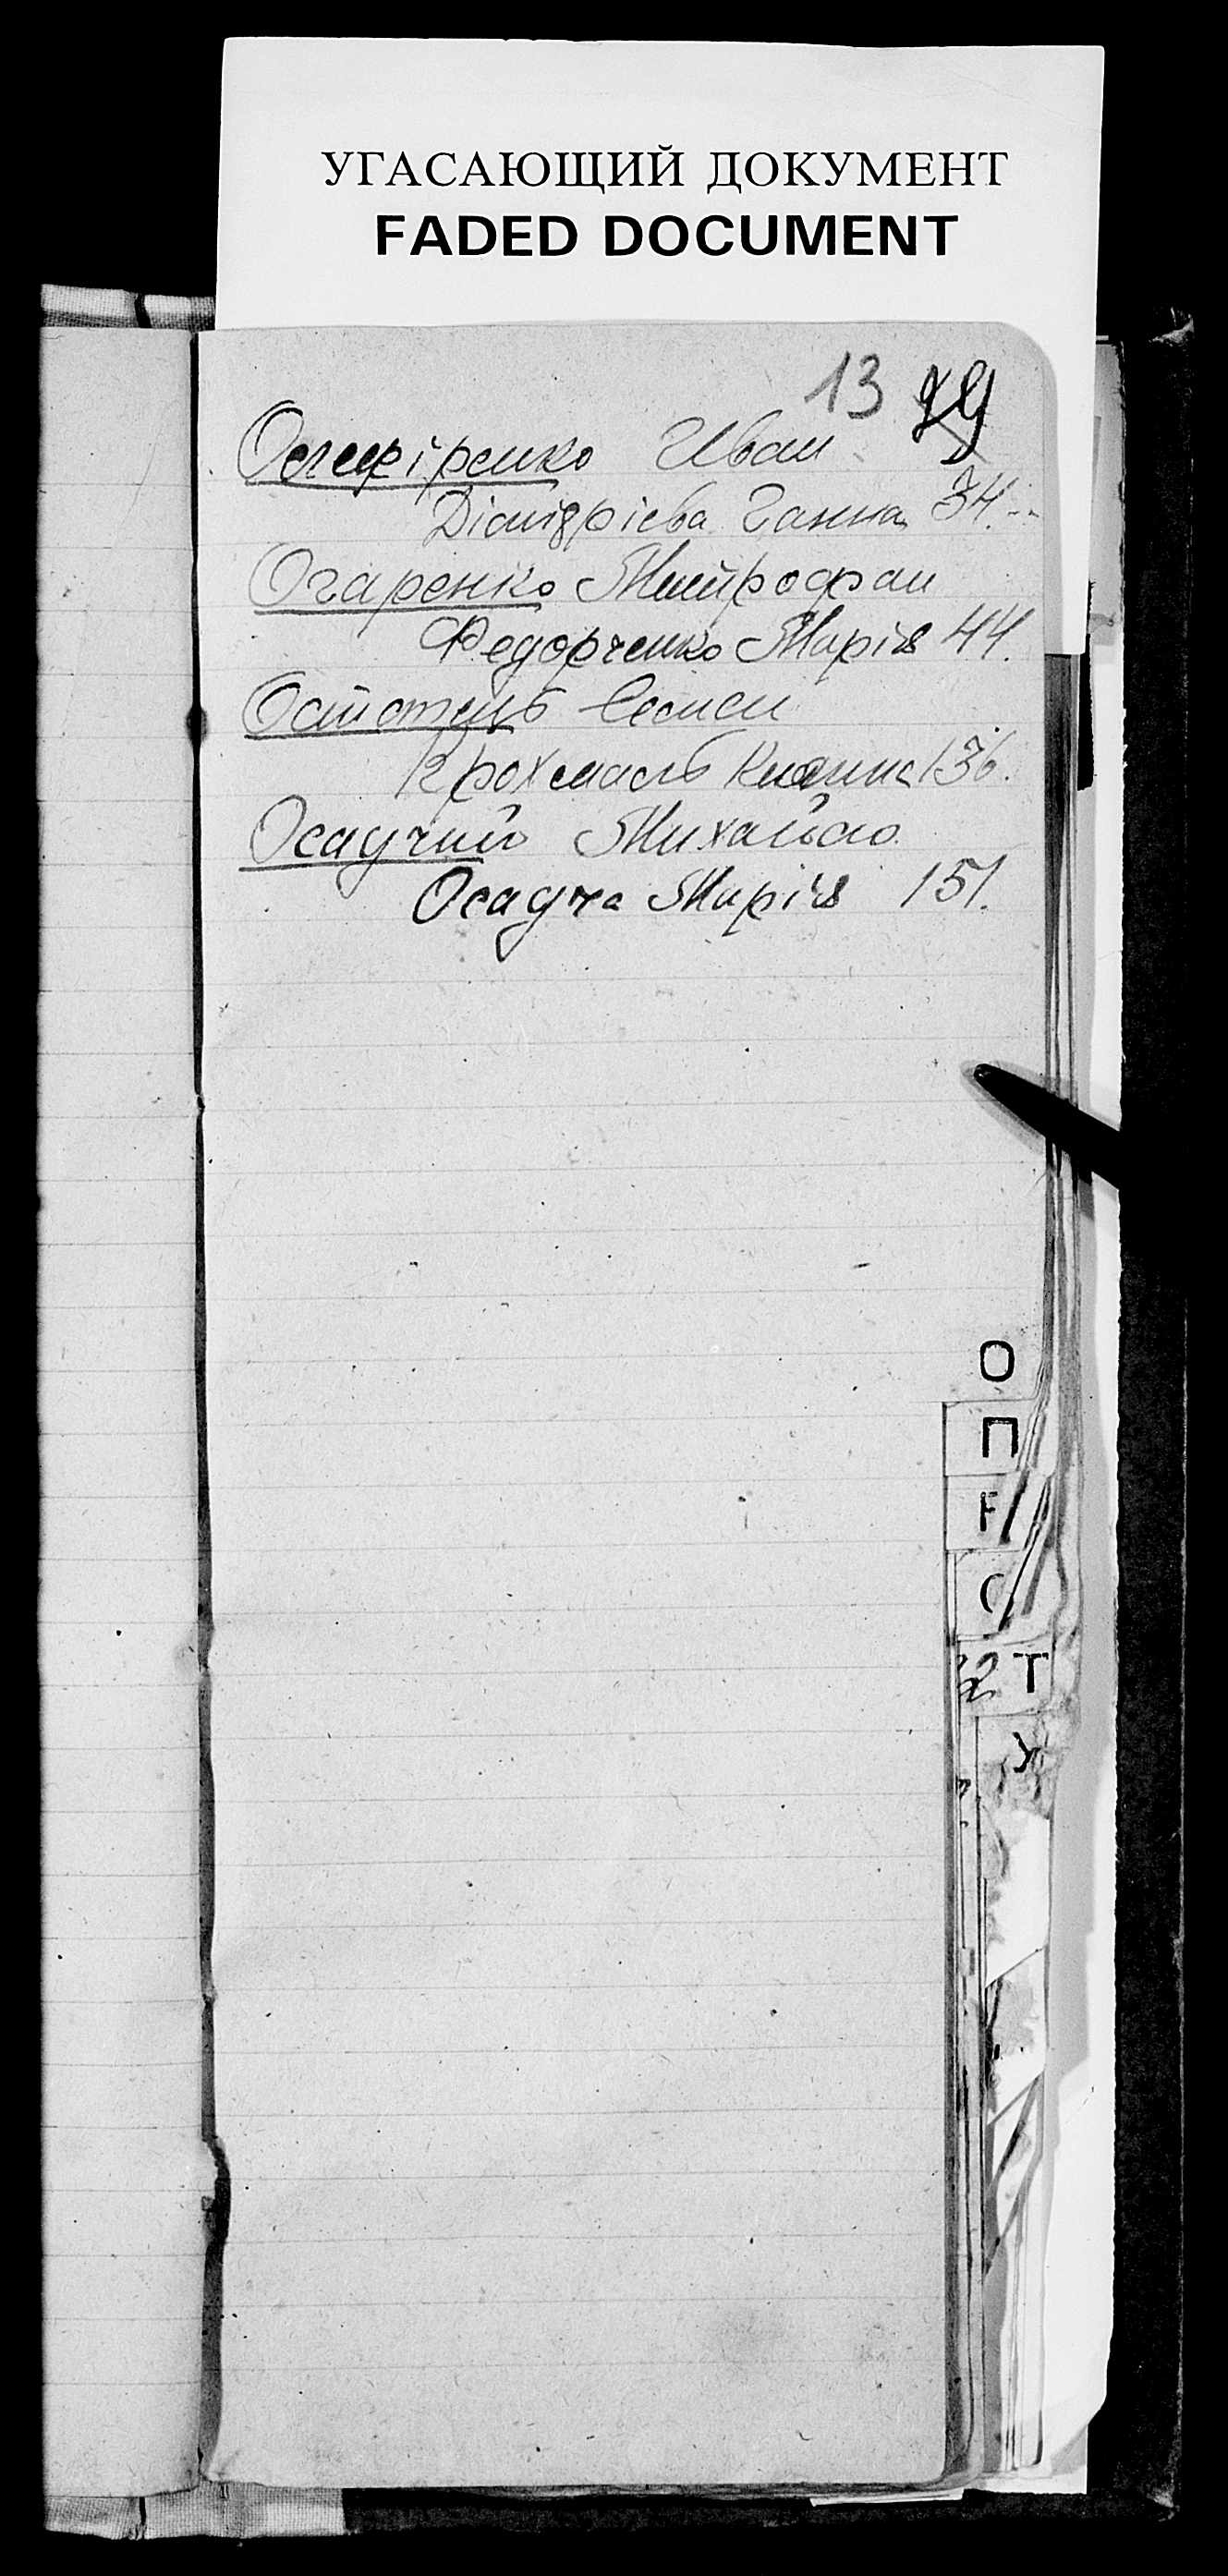 УГАСАЮЩИЙ ДОКУМЕНТ
FADED DOCUMENT
13
Иван
Ганна 34.
Огаренко Митрофан
Федорченко Марія 44.
Семен
Крохмаль 136.
Осадчий Михайло
Осадча Марія 151.
О
П
Р
С
Т
У